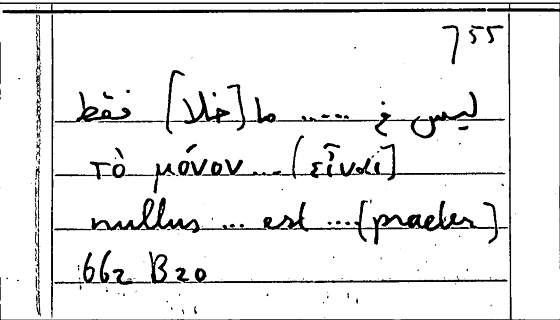 755
ليس غ ..... ما [خلا] فقط
τὸ μόνον ... (εἶναι]
nullus ... est .... (praeter]
662 B20